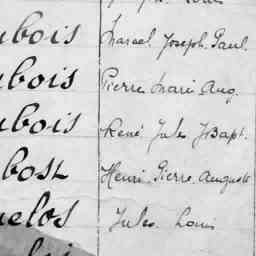 ubois Marcel Joseph Paul.
ubois Pierre Marie Aug.
ubois René Jules JBapt.
bost Henri Pierre Auguste
uelos Jules Louis